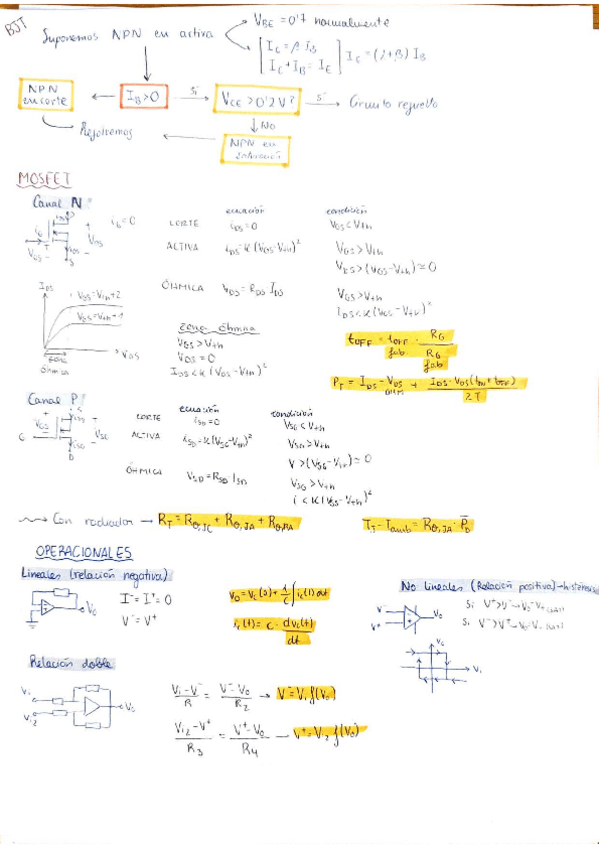 BJT
Suponemos NPN en activa
VBE = 0'7 normalmente
IC = β IB
IC + IB = IE
IC = (1+β) IB
NPN en corte
IB > 0
Sí
VCE > 0'2V?
Sí
Circuito resuelto
Rehacemos
No
NPN en saturación
MOSFET
Canal N:
iG = 0
ecuación
condición
CORTE
iDS = 0
VGS < Vth
ACTIVA
iDS = K (VGS - Vth)²
VGS > Vth
VDS > (VGS - Vth) = 0
ÓHMICA
VDS = RDS IDS
VGS > Vth
IDS < K (VGS - Vth)²
IDS
VGS = Vth + 2
VGS = Vth + 1
VDS
zona óhmica
Zona óhmica
VGS > Vth
VDS = 0
IDS < K (VGS - Vth)²
tOFF = tOFF fab · RG / RG fab
PT = IDS · VDS OHM + IDS · VDS (tON + tOFF) / 2T
Canal P:
ecuación
condición
CORTE
iSD = 0
VSG < Vth
ACTIVA
iSD = K (VSG - Vth)²
VSG > Vth
V > (VSG - Vth) = 0
ÓHMICA
VSD = RSD ISD
VSG > Vth
i < K (VSG - Vth)²
Con radiador → RT = Rθ,JC + Rθ,JA + Rθ,RA
TJ - Tamb = Rθ,JA · PD
OPERACIONALES
Lineales (relación negativa)
I⁻ = I⁺ = 0
V⁻ = V⁺
V0
V0 = Vc(0) + 1/C ∫ ic(t) dt
ic(t) = C · dVc(t) / dt
No Lineales (Relación positiva) → histéresis
V⁻
V⁺
V0
Si V⁺ > V⁻
Si V⁻ > V⁺
V0
Vi
Relación doble
Vi
Vi2
V0
Vi - V⁻ / R = V⁻ - V0 / R2 → V⁻ = Vi f(V0)
Vi2 - V⁺ / R3 = V⁺ - V0 / R4 → V⁺ = Vi2 f(V0)